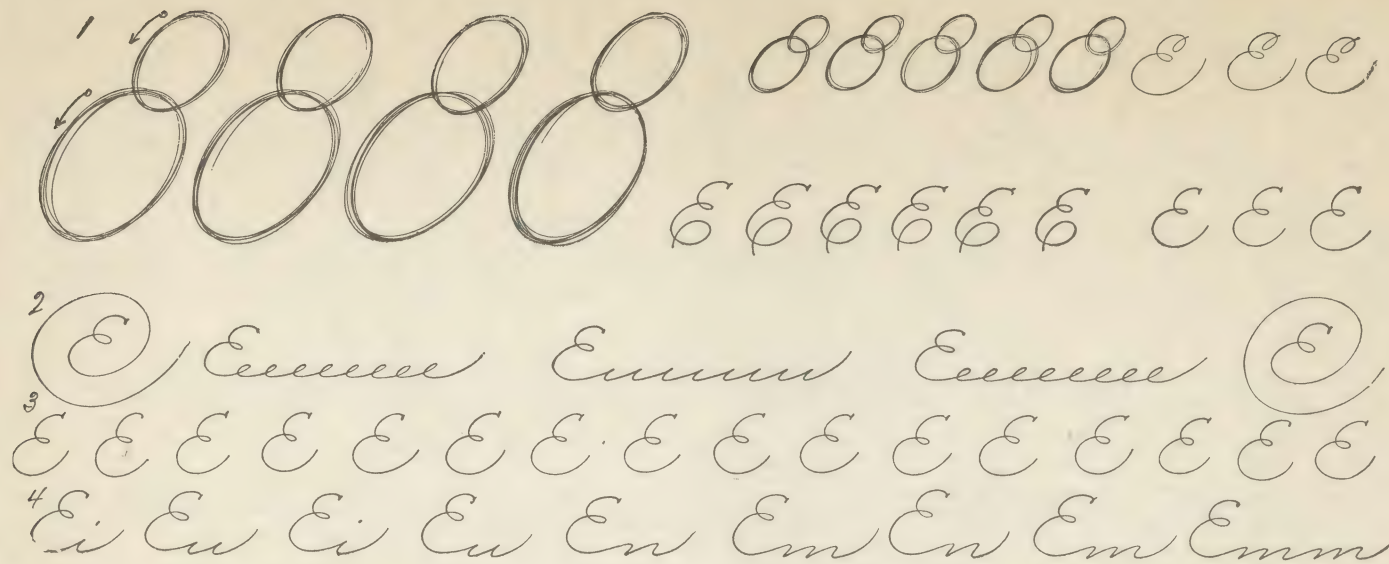 1 E E E
E E E E E E E E E
2 E Eeeeeeee Euuuuu Eeeeeeee E
3 E E E E E E E E E E E E E E E E
4 Ei Eu Ei Eu En Em En Em Emm